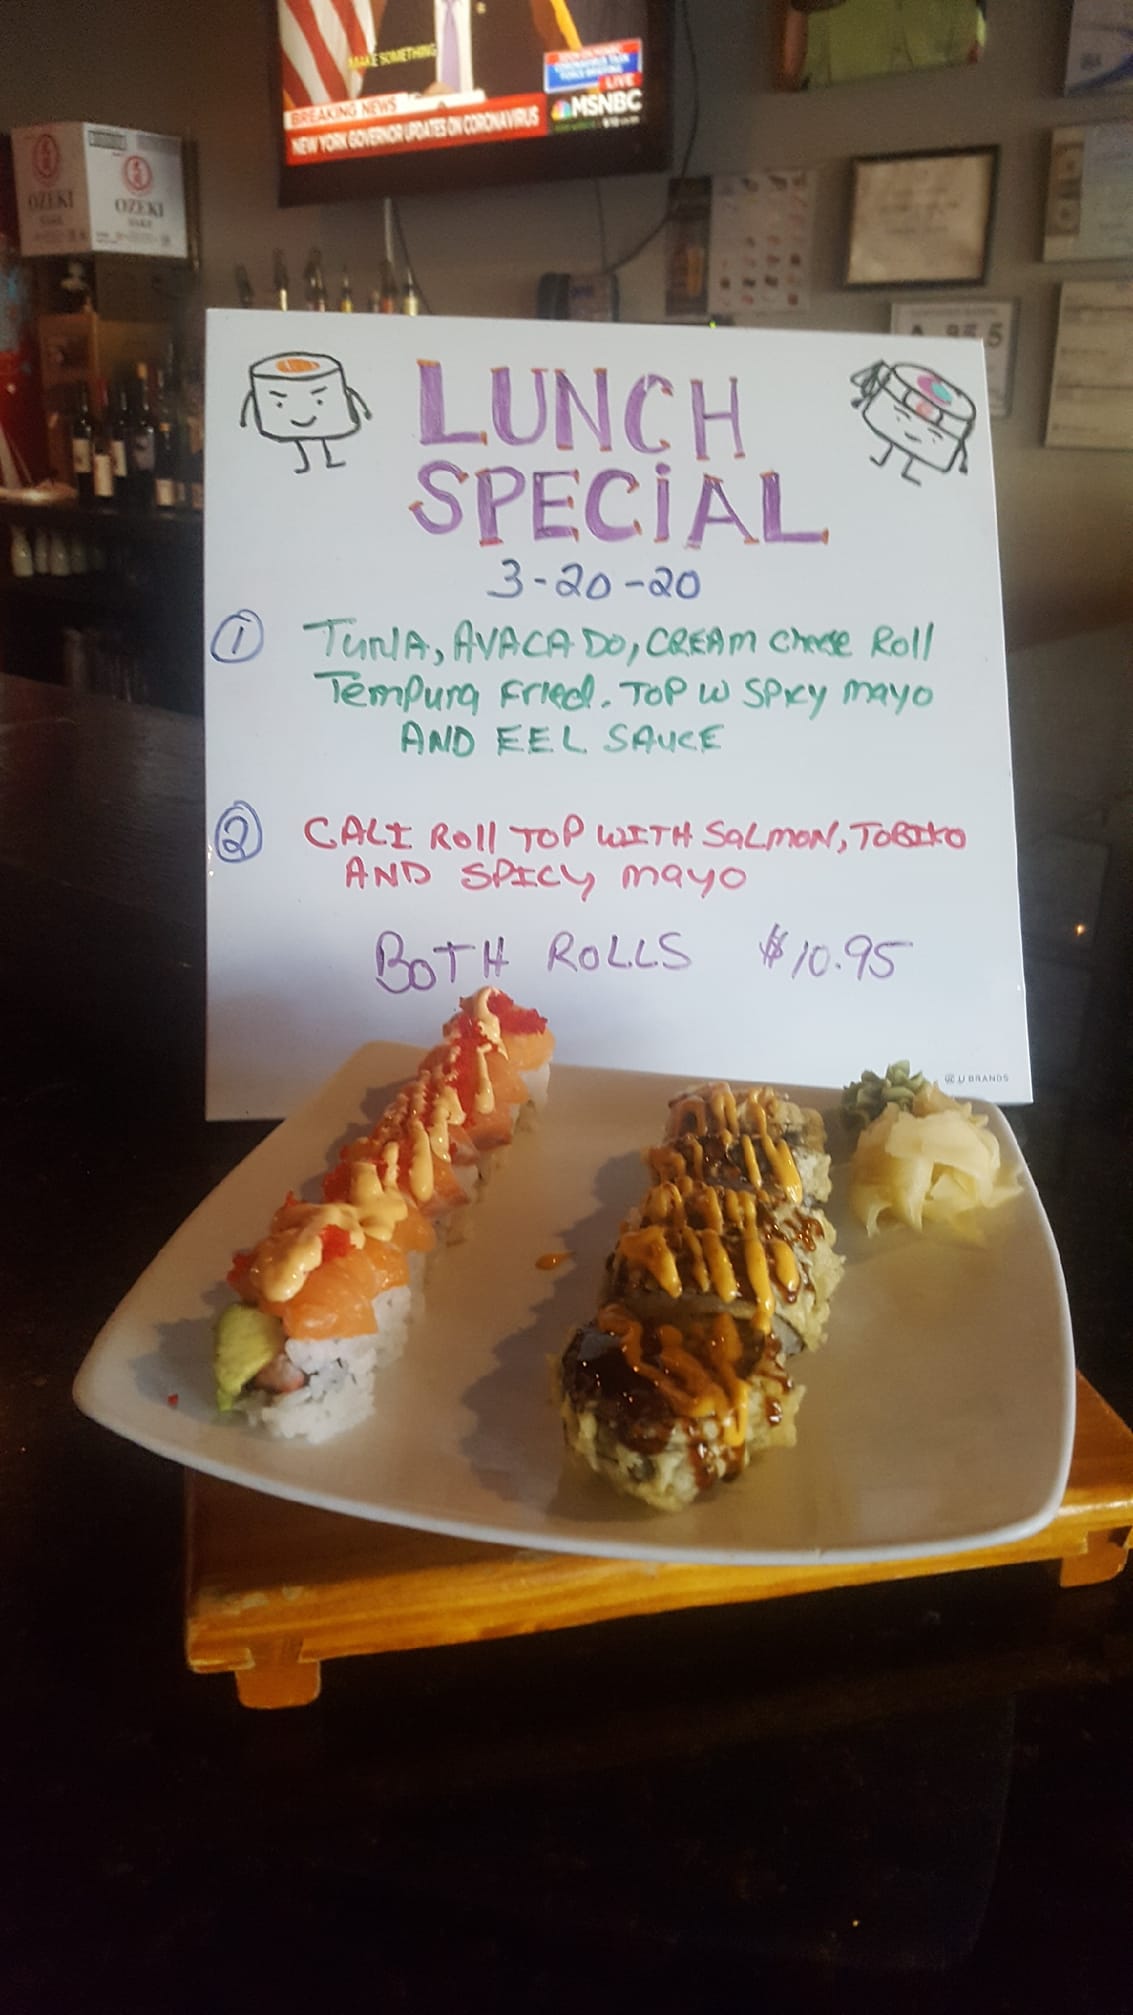 MAKE SOMETHING
CORONAVIRUS TASK
FORCE BRIEFING
LIVE
BREAKING NEWS
MSNBC
NEW YORK GOVERNOR UPDATES ON CORONAVIRUS
OZEKI
SAKE
OZEKI
SAKE
A 95.5
LUNCH
SPECiAL
3-20-20
1 TUNA, AVACADO, CREAM cheese Roll
TemPura Fried. TOP W SPicy mayo
AND EEL SAUCE
2 CALI Roll TOP WITH SaLMON, TOBIKO
AND SPICY mayo
BOTH ROLLS $10.95
U BRANDS